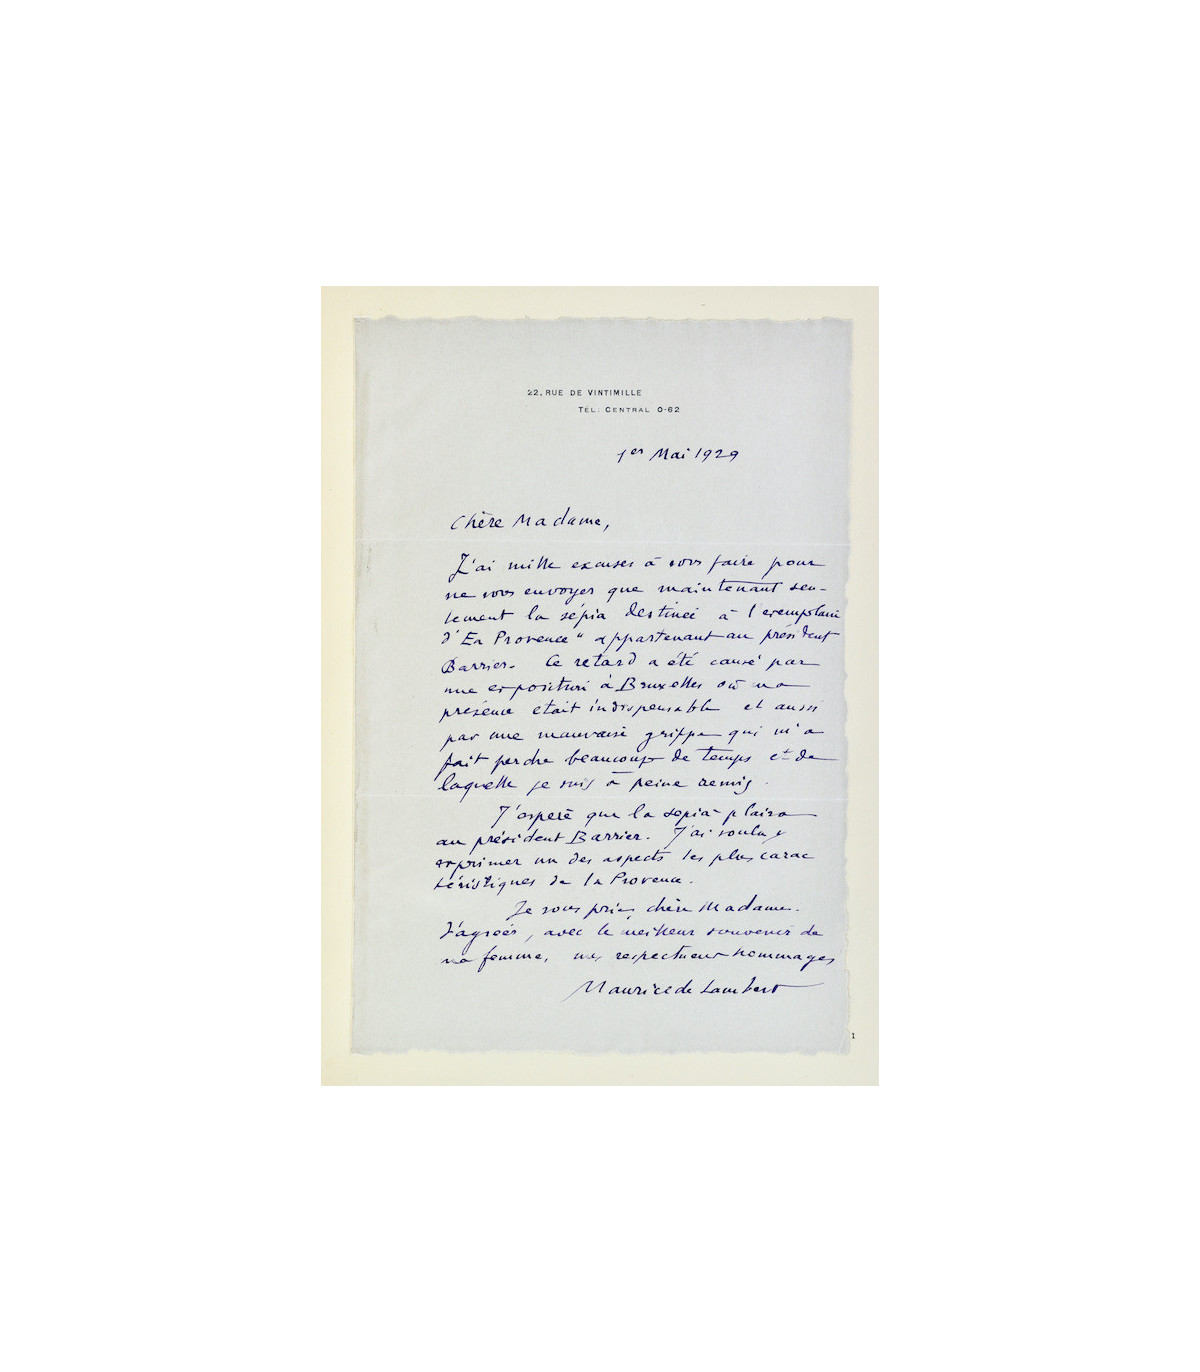 22, RUE DE VINTIMILLE
TEL: CENTRAL 0-62
1er Mai 1929
Chère Madame,
J'ai mille excuses à vous faire pour
ne vous envoyer que maintenant seu-
lement la sépia destinée à l'exemplaire
d'"En Provence" appartenant au président
Barrier. Ce retard a été causé par
une exposition à Bruxelles où ma
présence était indispensable et aussi
par une mauvaise grippe qui m'a
fait perdre beaucoup de temps et de
laquelle je suis à peine remis.
J'espère que la sépia plaira
au président Barrier. J'ai voulu y
exprimer un des aspects les plus carac
téristiques de la Provence.
Je vous prie, chère Madame.
d'agréer, avec le meilleur souvenir de
ma femme, mes respectueux hommages
Maurice de Lambert
1